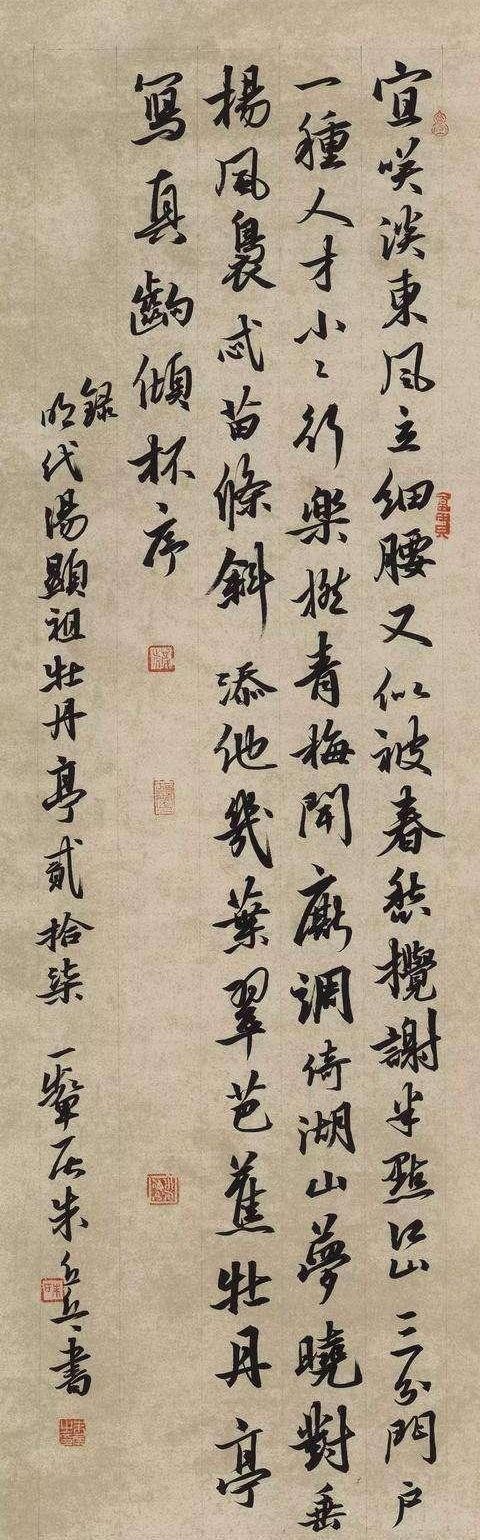 宜咲淡東風立細腰又似被春愁攪謝半點江山三分門戶
一種人才小〻行樂撚青梅閒廝調倚湖山夢曉對垂
楊風裊忒苗條斜添他幾葉翠芭蕉牡丹亭
寫真齣傾杯序
錄
明代湯顯祖牡丹亭貳拾柒 一居朱書